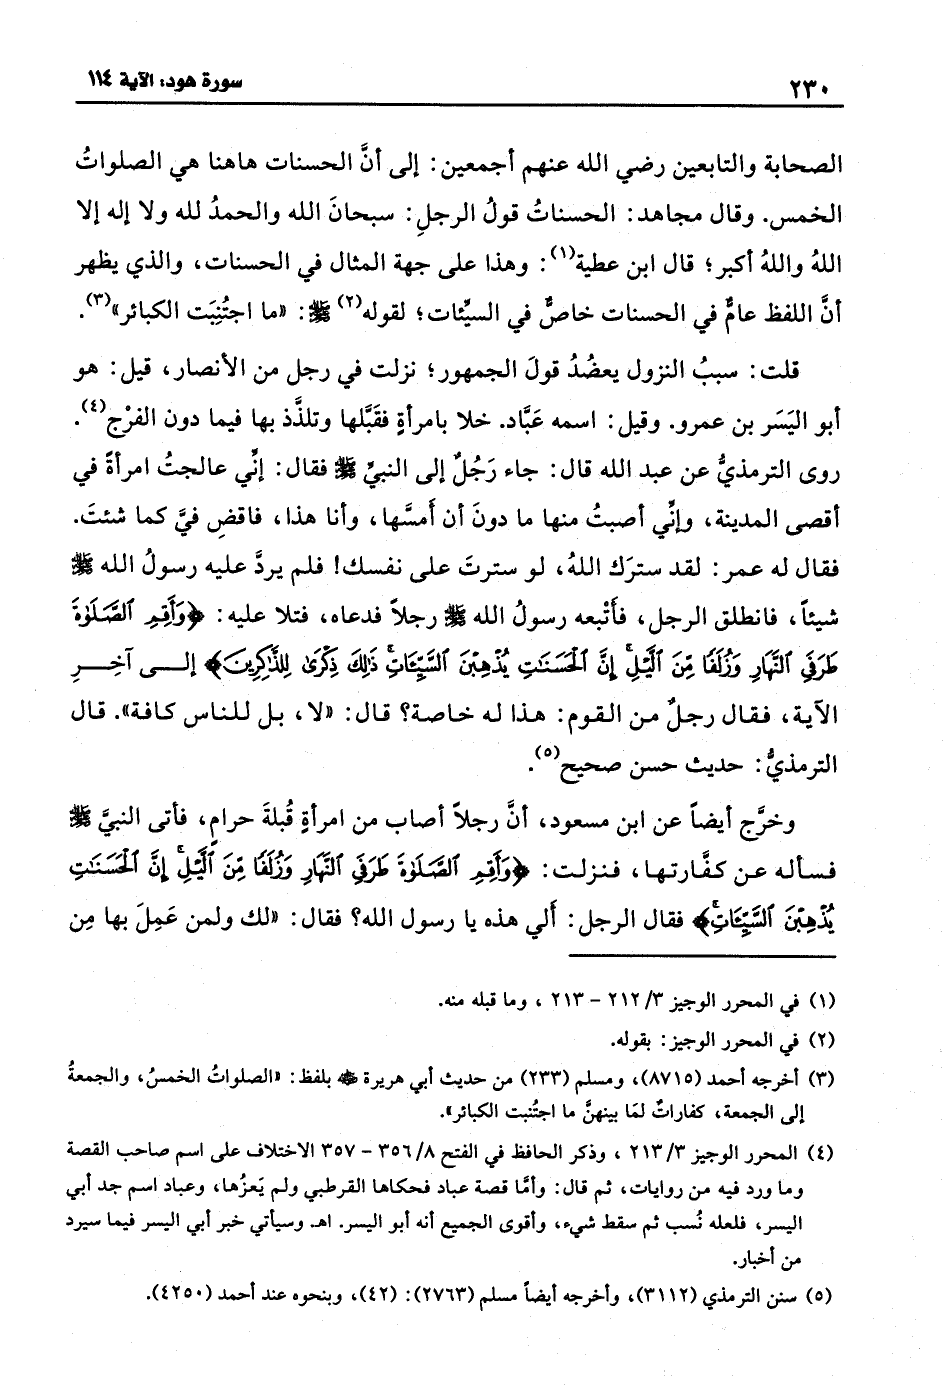 ٢٣٠
سورة هود: الآية ١١٤
الصحابة والتابعين رضي الله عنهم أجمعين: إلى أنَّ الحسنات هاهنا هي الصلواتُ
الخمس. وقال مجاهد: الحسناتُ قولُ الرجلِ: سبحانَ الله والحمدُ لله ولا إله إلا
اللهُ واللهُ أكبر؛ قال ابن عطية(١): وهذا على جهة المثال في الحسنات، والذي يظهر
أنَّ اللفظ عامٌّ في الحسنات خاصٌّ في السيِّئات؛ لقوله(٢) ﷺ: «ما اجتُنِبَت الكبائر»(٣).
قلت: سببُ النزول يعضُدُ قولَ الجمهور؛ نزلت في رجل من الأنصار، قيل: هو
أبو اليَسَر بن عمرو. وقيل: اسمه عَبَّاد. خلا بامرأةٍ فقَبَّلها وتلذَّذ بها فيما دون الفرْج(٤).
روى الترمذيُّ عن عبد الله قال: جاء رَجُلٌ إلى النبيِّ ﷺ فقال: إنِّي عالجتُ امرأةً في
أقصى المدينة، وإنِّي أصبتُ منها ما دونَ أن أمسَّها، وأنا هذا، فاقضِ فيَّ كما شئتَ.
فقال له عمر: لقد سترَك اللهُ، لو سترتَ على نفسك! فلم يردَّ عليه رسولُ الله ﷺ
شيئاً، فانطلق الرجل، فأَتْبعه رسولُ الله ﷺ رجلاً فدعاه، فتلا عليه: ﴿وَأَقِمِ ٱلصَّلَوٰةَ
طَرَفَيِ ٱلنَّهَارِ وَزُلَفًا مِّنَ ٱلَّيْلِۚ إِنَّ ٱلْحَسَنَٰتِ يُذْهِبْنَ ٱلسَّيِّـَٔاتِۚ ذَٰلِكَ ذِكْرَىٰ لِلذَّٰكِرِينَ﴾ إلى آخِرِ
الآية، فقال رجلٌ من القوم: هذا له خاصة؟ قال: «لا، بل للناس كافة». قال
الترمذيُّ: حديث حسن صحيح(٥).
وخرَّج أيضاً عن ابن مسعود، أنَّ رجلاً أصاب من امرأةٍ قُبلةَ حرامٍ، فأتى النبيَّ ﷺ
فسأله عن كفَّارتها، فنزلت: ﴿وَأَقِمِ ٱلصَّلَوٰةَ طَرَفَيِ ٱلنَّهَارِ وَزُلَفًا مِّنَ ٱلَّيْلِۚ إِنَّ ٱلْحَسَنَٰتِ
يُذْهِبْنَ ٱلسَّيِّـَٔاتِۚ﴾ فقال الرجل: أَلي هذه يا رسول الله؟ فقال: «لك ولمن عَمِلَ بها مِن
(١) في المحرر الوجيز ٢١٢/٣ - ٢١٣ ، وما قبله منه.
(٢) في المحرر الوجيز: بقوله.
(٣) أخرجه أحمد (٨٧١٥)، ومسلم (٢٣٣) من حديث أبي هريرة ﷺ بلفظ: «الصلواتُ الخمسُ، والجمعةُ
إلى الجمعة، كفاراتٌ لمَا بينهنَّ ما اجتُنبت الكبائر».
(٤) المحرر الوجيز ٢١٣/٣ ، وذكر الحافظ في الفتح ٣٥٦/٨ - ٣٥٧ الاختلاف على اسم صاحب القصة
وما ورد فيه من روايات، ثم قال: وأمَّا قصة عباد فحكاها القرطبي ولم يَعزُها، وعباد اسم جد أبي
اليسر، فلعله نُسب ثم سقط شيء، وأقوى الجميع أنه أبو اليسر. اهـ. وسيأتي خبر أبي اليسر فيما سيرد
من أخبار.
(٥) سنن الترمذي (٣١١٢)، وأخرجه أيضاً مسلم (٢٧٦٣): (٤٢)، وبنحوه عند أحمد (٤٢٥٠).